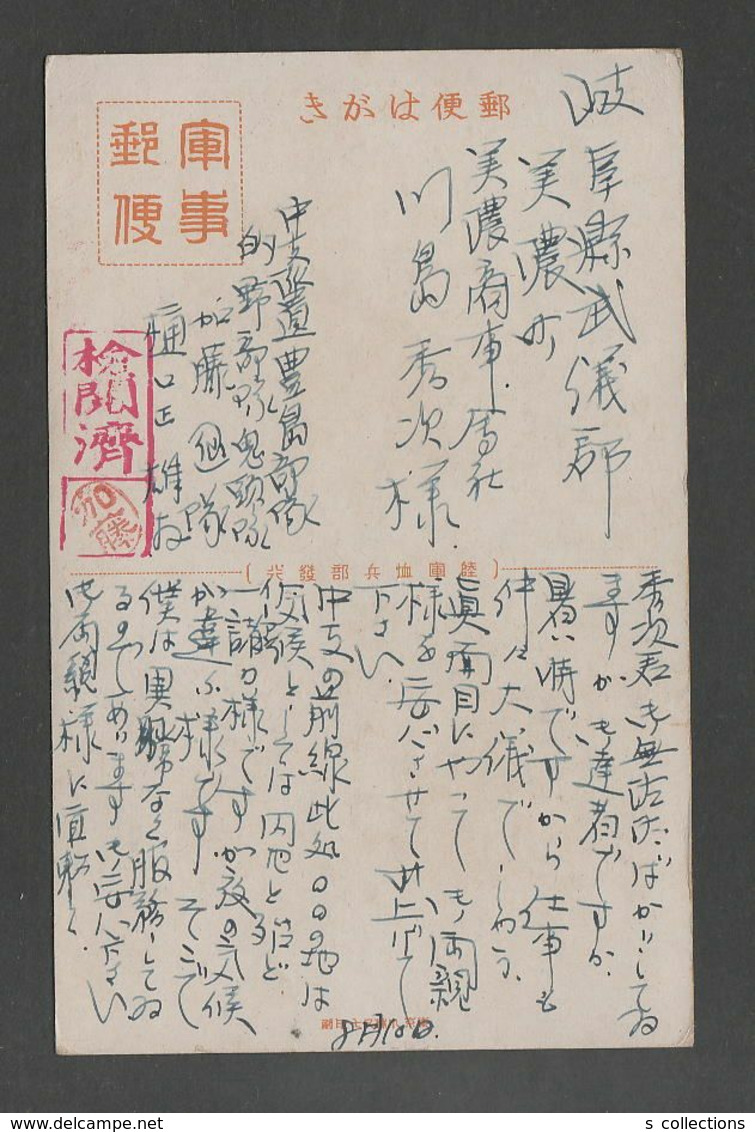 郵便はがき
軍事
郵便
岐阜縣武儀郡
美濃町
美濃商事会社
川島秀次様
中支派遣豊島部隊
的野部隊鬼頭隊
加藤(正)隊
樋口正雄
検閲済
加藤
(陸軍恤兵部發行)
秀次君御無沙汰ばかりしてゐ
ますが御達者ですか
暑い時ですから仕事も
仲々大儀でしょう
眞面目にやって御両親
様を安心させて上げて
下さい
中支の前線此処○○の地は
気候としては内地と殆ど
一諸の様ですが敵の気候
が違ふ様です そこで
僕は異常なく服務してゐ
るのであります 御安心下さい
御両親様に宜敷く
8月10日
s collections
www.delcampe.net